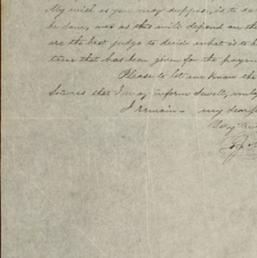 My wish as you may suppose, is to
be done, and as this will depend on the
are the best judge to decide what is to
time that has been given for the
Please to let me know the
that I may inform Sewell,
I remain - my dear